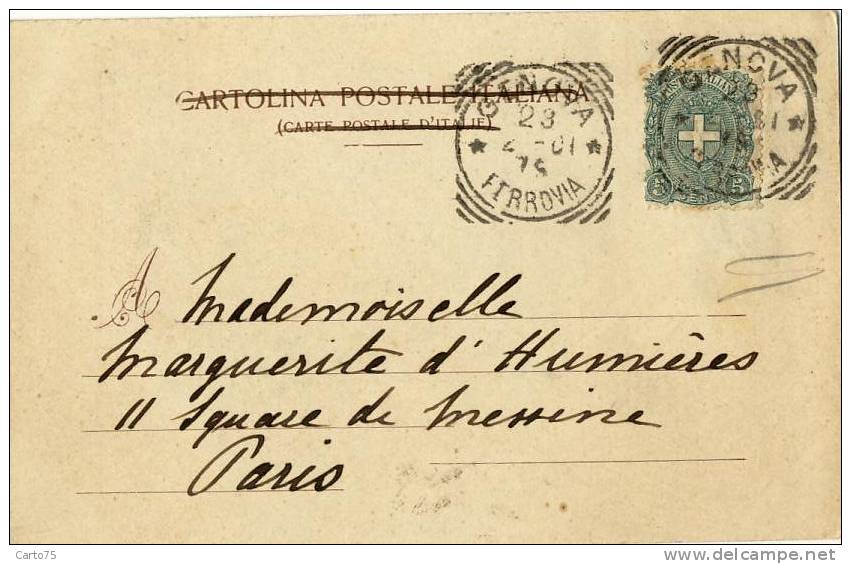 CARTOLINA POSTALE ITALIANA
(CARTE POSTALE D'ITALIE)
GENOVA
23
01
FERROVIA
GENOVA
23
5
5
A Mademoiselle
Marguerite d'Humières
11 Square de Messine
Paris
Carto75
www.delcampe.net